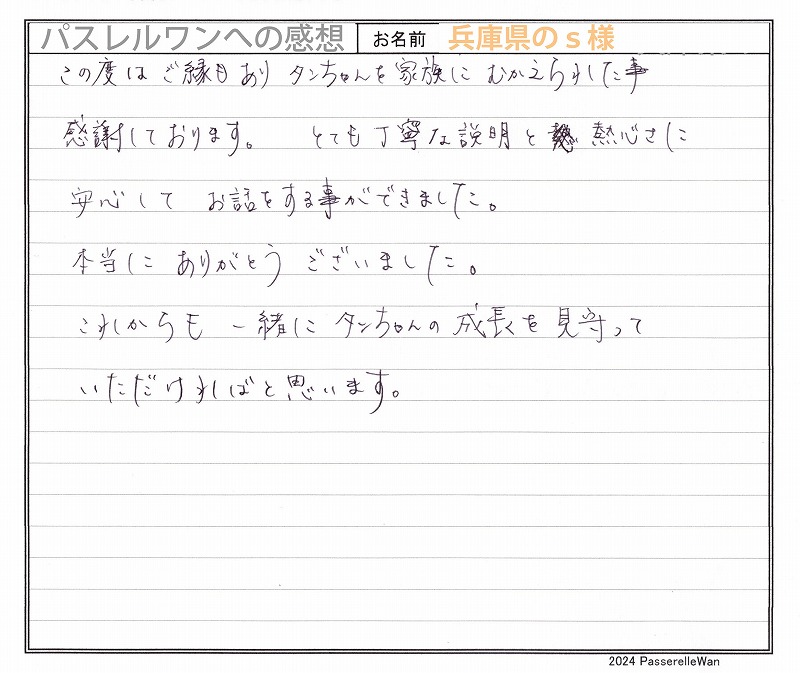 パスレルワンへの感想 お名前 兵庫県のｓ様
この度は ご縁もあり タンちゃんを 家族に むかえられした事
感謝しております。 とても丁寧な説明と 熱心さに
安心して お話をする事ができました。
本当に ありがとう ございました。
これからも 一緒に タンちゃんの 成長を 見守って
いただければと思います。
2024 PasserelleWan